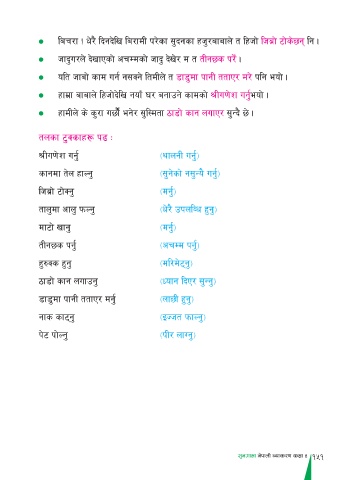 बिचरा ! धेरै दिनदेखि बिरामी परेका सुदनका हजुरबाबाले त हिजो जिब्रो टोकेछन् नि ।
जादुगरले देखाएको अचम्मको जादु देखेर म त तीनछक परें ।
यति जाबो काम गर्न नसक्ने तिमीले त डाडुमा पानी तताएर मरे पनि भयो ।
हाम्रा बाबाले हिजोदेखि नयाँ घर बनाउने कामको श्रीगणेश गर्नुभयो ।
हामीले के कुरा गर्छौं भनेर सुस्मिता ठाडो कान लगाएर सुन्दै छे ।
तलका टुक्काहरू पढ :
श्रीगणेश गर्नु (थालनी गर्नु)
कानमा तेल हाल्नु (सुनेको नसुन्यै गर्नु)
जिब्रो टोक्नु (मर्नु)
तालुमा आलु फल्नु (धेरै उपलब्धि हुनु)
माटो खानु (मर्नु)
तीनछक पर्नु (अचम्म पर्नु)
हुरुक्क हुनु (मरिमेट्नु)
ठाडो कान लगाउनु (ध्यान दिएर सुन्नु)
डाडुमा पानी तताएर मर्नु (लाछी हुनु)
नाक काट्नु (इज्जत फाल्नु)
पेट पोल्नु (पीर लाग्नु)
नेपाली व्याकरण कक्षा १५१